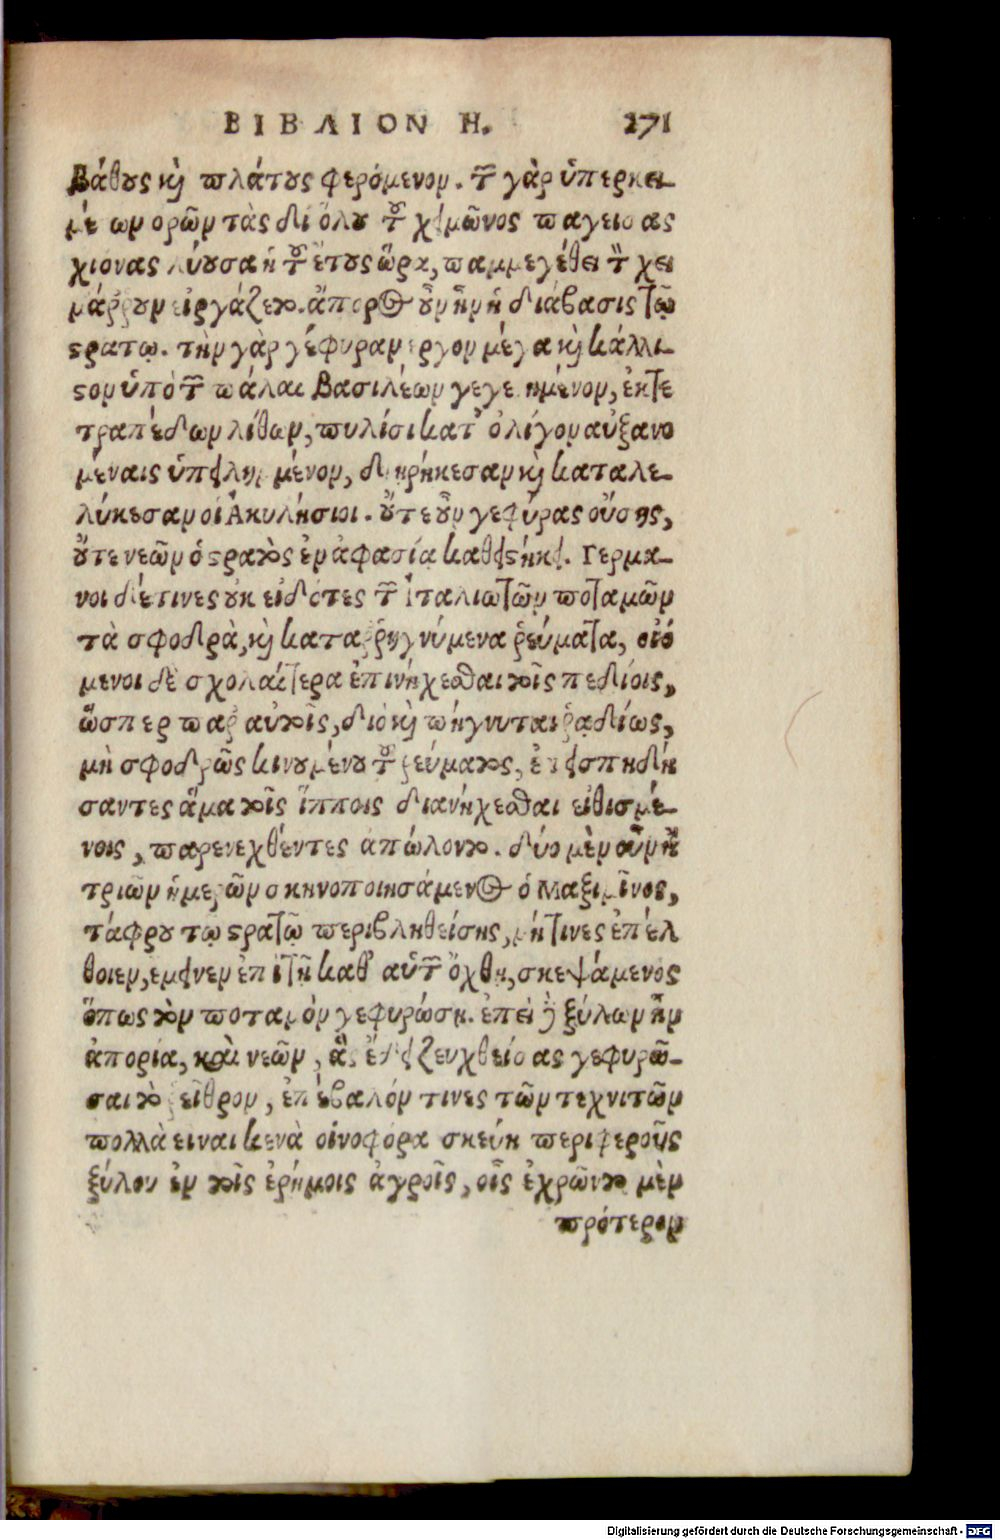 ΒΙΒΛΙΟΝ Η. 271
βάθους καὶ πλάτους φερόμενον. τῶν γὰρ ὑπερκει-
μέ ων ὀρῶν τὰς δι ὅλου τοῦ χειμῶνος παγείσας
χιόνας λύουσα ἡ τοῦ ἔτους ὥρα, παμμεγέθει τῷ χει
μάρρουν εἰργάζετο. ἄπορος οὖν ἦν ἡ διάβασις τῷ
στρατῷ. τὴν γὰρ γέφυραν ἔργον μέγα καὶ κάλλι-
στον ὑπὸ τῶν πάλαι βασιλέων γεγε ημένον, ἐκ τε
τραπέδων λίθων, πυλίσι κατ' ὀλίγον αὐξανο
μέναις ὑπειλημμένον, διῃρήκεσαν καὶ καταλε-
λύκεσαν οἱ Ἀκυλήσιοι. οὔτε οὖν γεφύρας οὔσης,
οὔτε νεῶν ὁ στρατὸς ἐν ἀφασίᾳ καθειστήκει. Γερμα-
νοὶ δέ τινες οὐκ εἰδότες τῶν Ἰταλιωτῶν ποταμῶν
τὰ σφοδρὰ, καὶ καταρρηγνύμενα ῥεύματα, οἰό
μενοι δὲ σχολαίτερα ἐπινήχεσθαι τοῖς πεδίοις,
ὥσπερ παρ αὐτοῖς, διὸ καὶ πήγνυται ῥᾳδίως,
μὴ σφοδρῶς κινουμένου τοῦ ῥεύματος, ἐπεισπηδή
σαντες ἅμα τοῖς ἵπποις διανήχεσθαι εἰθισμέ-
νοις, παρενεχθέντες ἀπώλοντο. δύο μὲν οὖν ἢ
τριῶν ἡμερῶν σκηνοποιησάμενος ὁ Μαξιμῖνος,
τάφρου τῷ στρατῷ περιβληθείσης, μή τινες ἐπέλ
θοιεν, ἔμεινεν ἐπὶ τῇ καθ' αὑτὸν ὄχθῃ, σκεψάμενος
ὅπως τὸν ποταμὸν γεφυρώσῃ. ἐπεὶ δὲ ξύλων ἦν
ἀπορία, καὶ νεῶν, ἃς ἔδει ζευχθείσας γεφυρῶ-
σαι τὸ ῥεῖθρον, ἐπέβαλόν τινες τῶν τεχνιτῶν
πολλὰ εἶναι κενὰ οἰνοφόρα σκεύη περιφεροῦς
ξύλου ἐν τοῖς ἐρήμοις ἀγροῖς, οἷς ἐχρῶντο μὲν
πρότερον
Digitalisierung gefördert durch die Deutsche Forschungsgemeinschaft - DFG